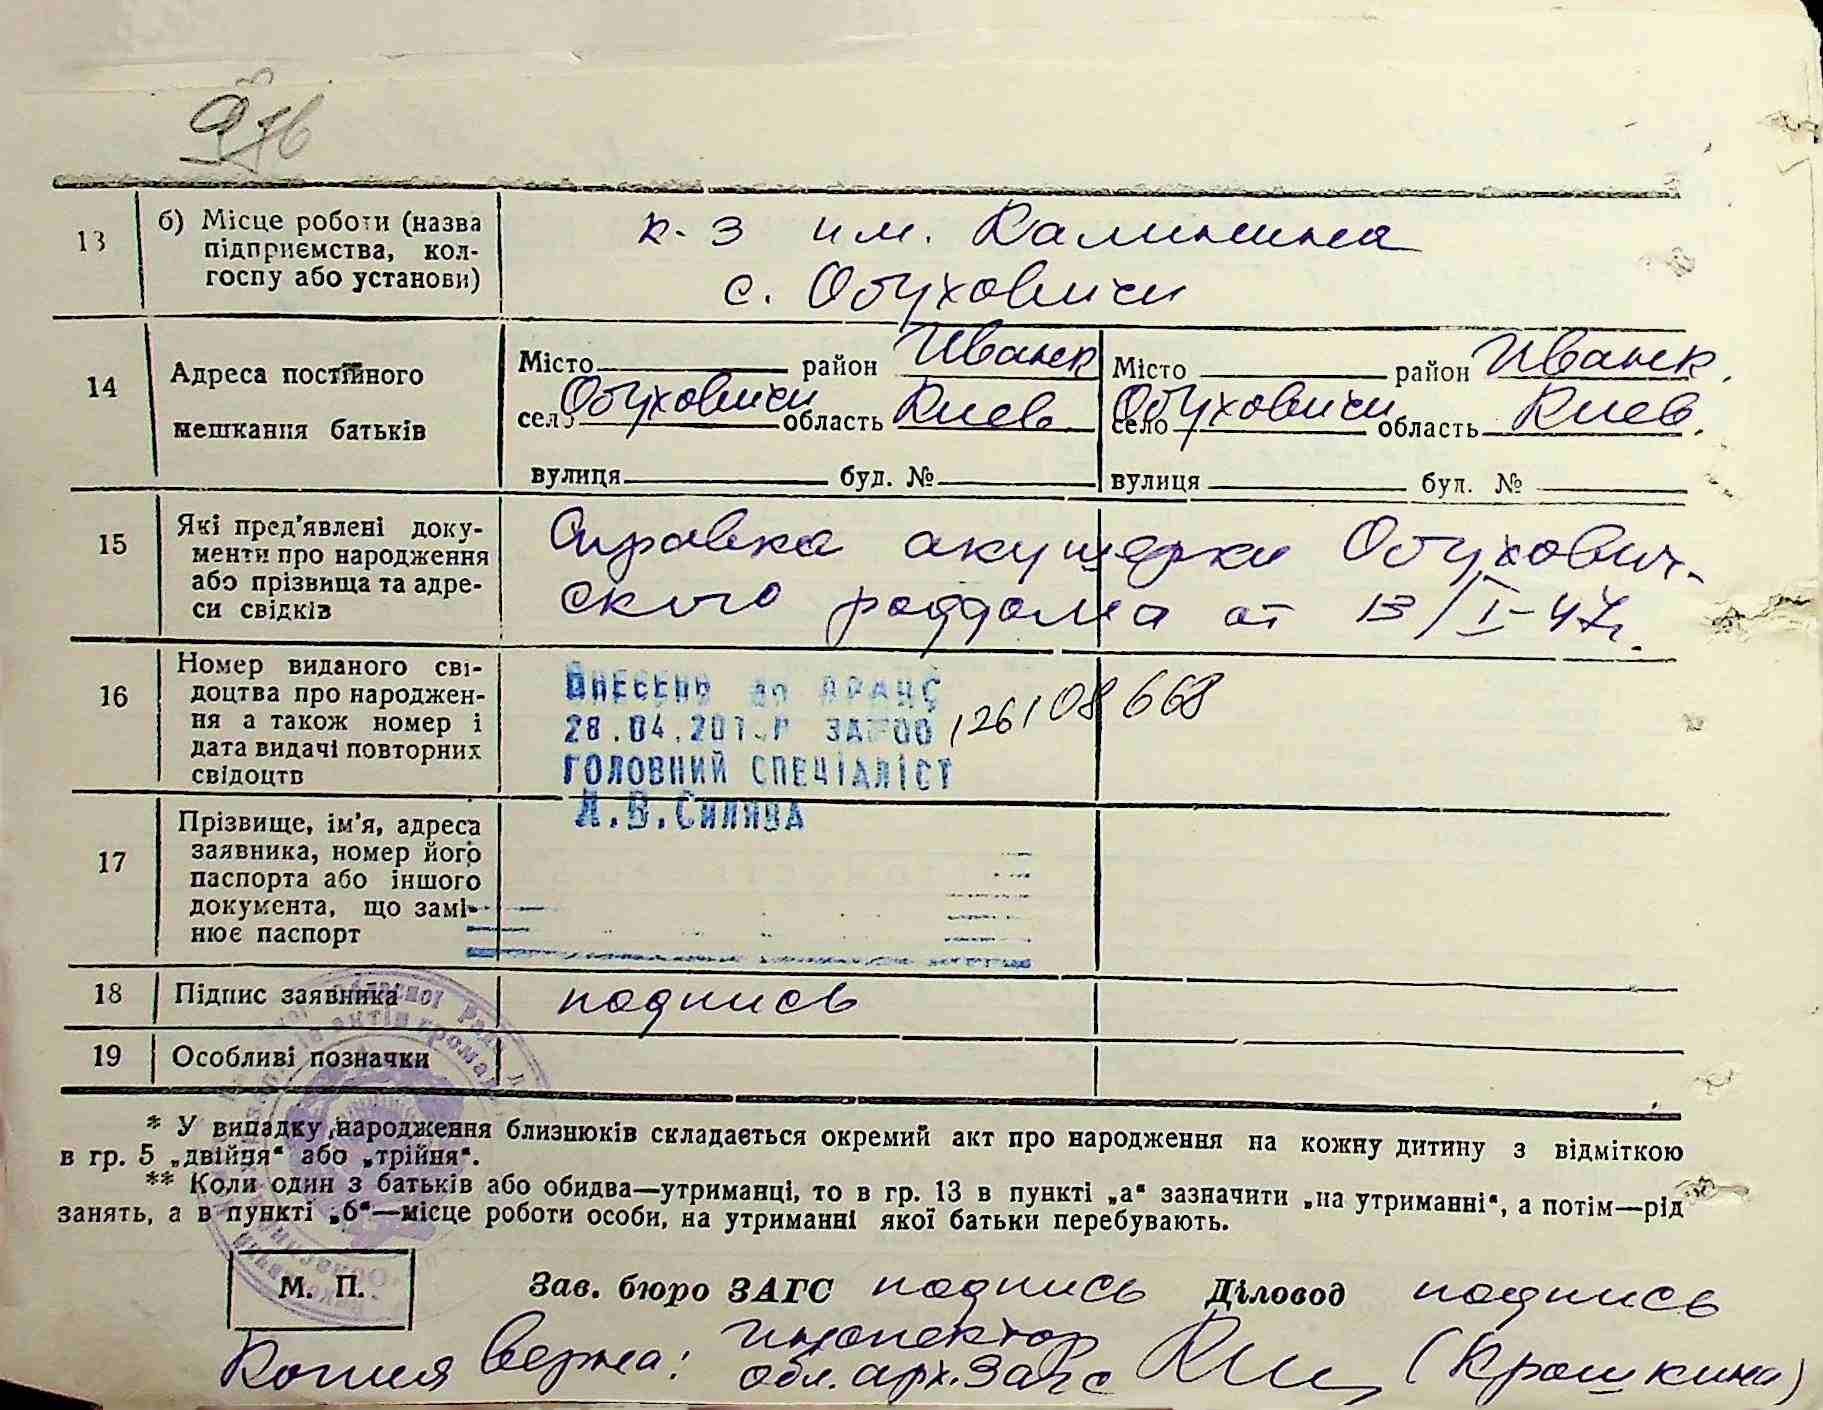 13
б) Місце роботи (назва
підприємства, кол-
госпу або установи)
к-з им. Калинина
с. Обуховичи
14
Адреса постійного
мешкання батьків
Місто район Иванк
село Обуховичи область Киев.
вулиця буд. №
Місто район Иванк.
село Обуховичи область Киев.
вулиця буд. №
15
Які пред'явлені доку-
менти про народження
або прізвища та адре-
си свідків
Справка акушерки Обухович-
ского роддома от 13/I-47г.
16
Номер виданого сві-
доцтва про народжен-
ня а також номер і
дата видачі повторних
свідоцтв
28.04.201
ГОЛОВНИЙ СПЕЦІАЛІСТ
126108668
17
Прізвище, ім'я, адреса
заявника, номер його
паспорта або іншого
документа, що замі-
нює паспорт
18
Підпис заявника
подпись
19
Особливі позначки
* У випадку народження близнюків складається окремий акт про народження на кожну дитину з відміткою
в гр. 5 „двійня“ або „трійня“.
** Коли один з батьків або обидва—утриманці, то в гр. 13 в пункті „а“ зазначити „на утриманні“, а потім—рід
занять, а в пункті „б“—місце роботи особи, на утриманні якої батьки перебувають.
М. П.
Зав. бюро ЗАГС подпись Діловод подпись
Копия верна: инспектор
обл. арх. Загс (Крошкина)